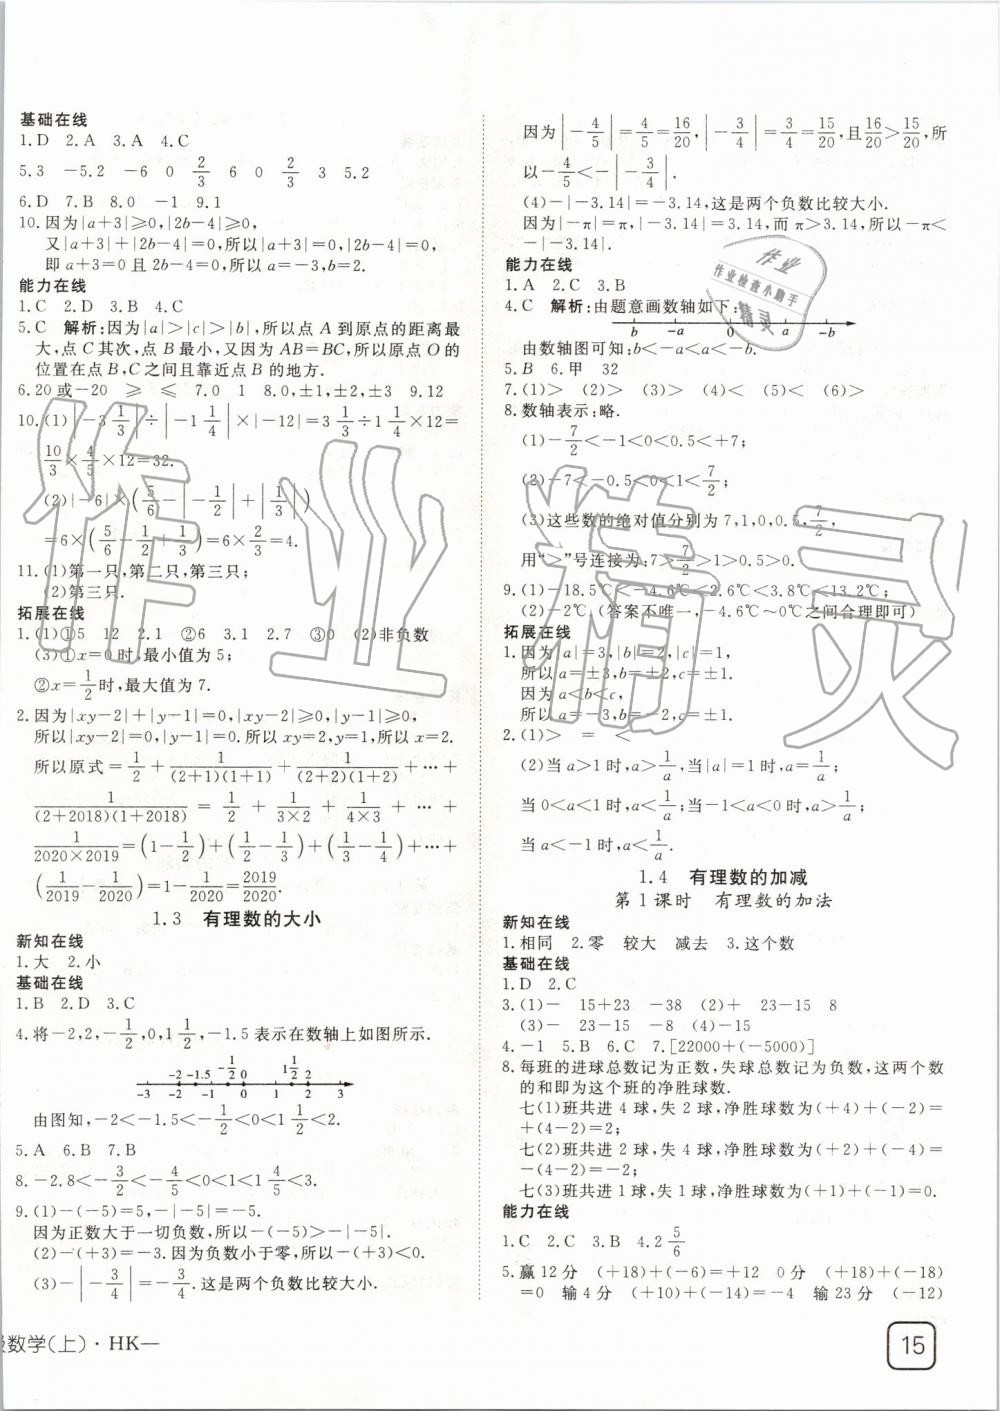 基础在线
1.D 2.A 3.A 4.C
5.3 −5.2 −6 0 2/3 6 0 2/3 3 5.2
6.D 7.B 8.0 −1 9.1
10.因为|a+3|≥0,|2b−4|≥0,
又|a+3|+|2b−4|=0,所以|a+3|=0,|2b−4|=0,
即 a+3=0 且 2b−4=0,所以 a=−3,b=2.
能力在线
1.C 2.D 3.B 4.C
5.C 解析:因为|a|>|c|>|b|,所以点 A 到原点的距离最
大,点 C 其次,点 B 最小,又因为 AB=BC,所以原点 O 的
位置在点 B,C 之间且靠近点 B 的地方.
6.20 或−20 ≥ ≤ 7.0 1 8.0,±1,±2,±3 9.12
10.(1)|−3 1/3|÷|−1 1/4|×|−12|=3 1/3÷1 1/4×12=
10/3×4/5×12=32.
(2)|−6|×(5/6−|−1/2|+|1/3|)
=6×(5/6−1/2+1/3)=6×2/3=4.
11.(1)第一只,第二只,第三只;
(2)第三只.
拓展在线
1.(1)①5 12 2.1 ②6 3.1 2.7 ③0 (2)非负数
(3)①x=0 时,最小值为 5;
②x=1/2时,最大值为 7.
2.因为|xy−2|+|y−1|=0,|xy−2|≥0,|y−1|≥0,
所以|xy−2|=0,|y−1|=0.所以 xy=2,y=1,所以 x=2.
所以原式=1/2+1/((2+1)(1+1))+1/((2+2)(1+2))+⋯+
1/((2+2018)(1+2018))=1/2+1/(3×2)+1/(4×3)+⋯+
1/(2020×2019)=(1−1/2)+(1/2−1/3)+(1/3−1/4)+⋯+
(1/2019−1/2020)=1−1/2020=2019/2020.
1.3 有理数的大小
新知在线
1.大 2.小
基础在线
1.B 2.D 3.C
4.将−2,2,−1/2,0,1 1/2,−1.5 表示在数轴上如图所示.
−2 −1.5 −1/2 0 1 1/2 2
−3 −2 −1 0 1 2 3
由图知,−2<−1.5<−1/2<0<1 1/2<2.
5.A 6.B 7.B
8.−2.8<−3/2<−4/5<0<1<1 4/5<3.
9.(1)−(−5)=5,−|−5|=−5.
因为正数大于一切负数,所以−(−5)>−|−5|.
(2)−(+3)=−3.因为负数小于零,所以−(+3)<0.
(3)−|−3/4|=−3/4.这是两个负数比较大小.
级数学(上)·HK—
因为|−4/5|=4/5=16/20,|−3/4|=3/4=15/20,且16/20>15/20,所
以−4/5<−|−3/4|.
(4)−|−3.14|=−3.14,这是两个负数比较大小.
因为|−π|=π,|−3.14|=3.14,而 π>3.14,所以−π<
−|−3.14|.
能力在线
1.A 2.C 3.B
4.C 解析:由题意画数轴如下:
b −a 0 a −b
由数轴图可知:b<−a<a<−b.
5.B 6.甲 32
7.(1)> (2)> (3)> (4)< (5)< (6)>
8.数轴表示:略.
(1)−7/2<−1<0<0.5<+7;
(2)−7<−0.5<0<1<7/2;
(3)这些数的绝对值分别为 7,1,0,0.5,7/2,
用“>”号连接为:7>7/2>1>0.5>0.
9.(1)−18.5℃<−4.6℃<2.6℃<3.8℃<13.2℃;
(2)−2℃(答案不唯一,−4.6℃~0℃之间合理即可)
拓展在线
1.因为|a|=3,|b|=2,|c|=1,
所以 a=±3,b=±2,c=±1.
因为 a<b<c,
所以 a=−3,b=−2,c=±1.
2.(1)> = <
(2)当 a>1 时,a>1/a;当|a|=1 时,a=1/a;
当 0<a<1 时,a<1/a;当−1<a<0 时,a>1/a;
当 a<−1 时,a<1/a.
1.4 有理数的加减
第 1 课时 有理数的加法
新知在线
1.相同 2.零 较大 减去 3.这个数
基础在线
1.D 2.C
3.(1)− 15+23 −38 (2)+ 23−15 8
(3)− 23−15 −8 (4)−15
4.−1 5.B 6.C 7.[22000+(−5000)]
8.每班的进球总数记为正数,失球总数记为负数,这两个数
的和即为这个班的净胜球数.
七(1)班共进 4 球,失 2 球,净胜球数为(+4)+(−2)=
+(4−2)=2;
七(2)班共进 2 球,失 4 球,净胜球数为(+2)+(−4)=
−(4−2)=−2;
七(3)班共进 1 球,失 1 球,净胜球数为(+1)+(−1)=0.
能力在线
1.C 2.C 3.B 4.2 5/6
5.赢12分 (+18)+(−6)=+12 0分 (+18)+(−18)
=0 输4分 (+10)+(−14)=−4 输23分 (−12)
15
作业
作业检查小助手
精灵
作业精灵